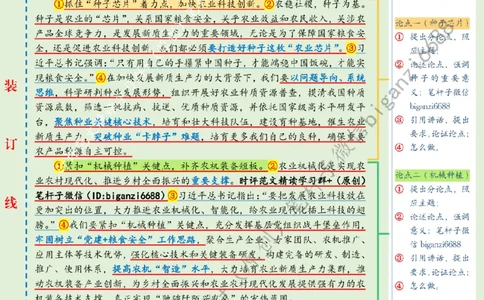 ①抓住“种子芯片”着力点，加快农业科技创新。②农稳社稷，粮丰为基。
种子是农业的“芯片”，关系国家粮食安全，关乎农业效益和农民收入，关涉农
产品全球竞争力，是发展新质生产力的重要领域，无论是为了保障国家粮食安
全，还是促进农业科技创新，我们都必须要打造好种子这枚“农业芯片”。③习
近平总书记强调：“只有用自己的手攥紧中国种子，才能端稳中国饭碗，才能实
现粮食安全。”④在加快发展新质生产力的大背景下，我们要以问题导向、系统
思维，科学研判种业发展形势，组织开展好农业种质资源普查，提清我国种质
资源底数，筛选一批抗病、抗逆、优质种质资源，并依托国家级高水平研发平
台，聚焦种业关键核心技术，培育和壮大科技队伍，建设育种基地，催生农业
新质生产力，突破种业“卡脖子”难题，培育更多我们自己的良种，确保重要
农产品种源自主可控。
①紧扣“机械种植”关键点，补齐农机装备短板。②农业机械化是实现农
业农村现代化、推进乡村全面振兴的重要支撑。时评范文精读学习群+（原创）
笔杆子微信（ID:biganzi6688）③习近平总书记指出：“要把发展农业科技放在
更加突出的位置，大力推进农业机械化、智能化，给农业现代化插上科技的翅
膀。”④我们要紧扣“机械种植”关键点，充分发挥基层党组织战斗堡垒作用，
牢固树立“党建+粮食安全”工作思路，聚合生产企业、专家团队、农机推广、
应用主体等技术优势，强化核心技术和关键装备研发，构建完备的研发、制造、
推广、使用体系，提高农机“智造”水平，大力培育农业新质生产力集群，推
动农机装备产业创新，为乡村全面振兴和农业农村现代化发展提供强有力的农
装
订
线
论点一（种子芯片）
① 提出分论点，照
应主题；
② 论述论点，强调
种子的重要意
义；笔杆子微信
biganzi6688
③ 引用讲话，提出
要求，论证论点；
④ 怎么做。
论点二（机械种植）
① 提出分论点，照
应主题；
② 论述论点，强调
意义；笔杆子微
信 biganzi6688
③ 引用讲话，提出
要求，论证论点；
④ 怎么做。